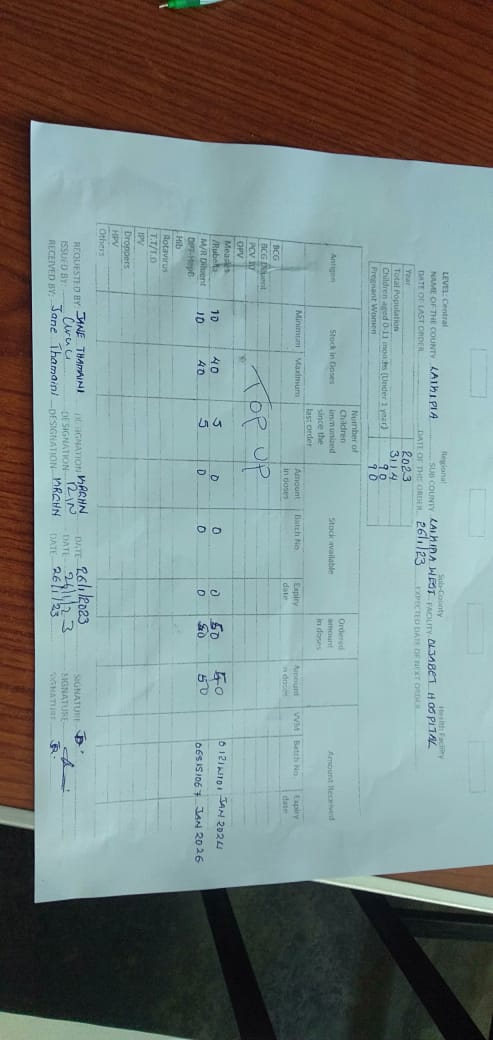 LEVEL: Central Regional Sub-County Health Facility
NAME OF THE COUNTY LAIKIPIA SUB COUNTY LAIKIPIA WEST FACILITY OLJABET HOSPITAL
DATE OF LAST ORDER DATE OF THIS ORDER 26/1/23 EXPECTED DATE OF NEXT ORDER
Year 2023
Total Population 3114
Children aged 0-11 months (Under 1 year) 90
Pregnant Women 90
Antigen Stock in Doses Number of Children immunized since the last order Stock available Ordered amount in doses Amount Received
Minimum Maximum Amount in doses Batch No. Expiry date Amount in doses VVM Batch No. Expiry date
BCG
BCG Diluent
PCV 10
OPV
TOP UP
Measles /Rubella 10 40 5 0 0 0 50 50 JAN 2024
M/R Diluent 10 40 5 0 0 0 50 50 JAN 2026
DPT-HepB Hib
Rotavirus
T.T/T.D
IPV
Droppers
HPV
Others
REQUESTED BY: JANE THAMAINI DESIGNATION MRCHN DATE 26/1/2023 SIGNATURE
ISSUED BY: DESIGNATION DATE SIGNATURE
RECEIVED BY: Jane Thamaini DESIGNATION MRCHN DATE 26/1/23 SIGNATURE